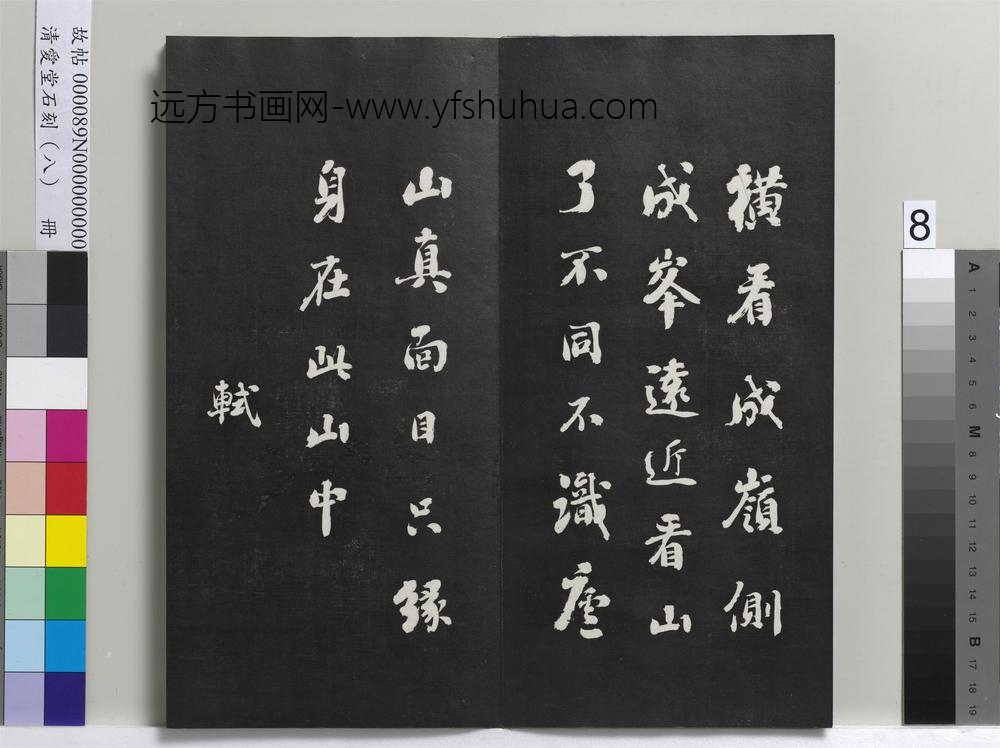 橫看成嶺側
成峯遠近看山
了不同不識廬
山真面目只緣
身在此山中
軾
远方书画网-www.yfshuhua.com
故帖 000089N000000000
清愛堂石刻（八） 冊
8
A 1 2 3 4 5 6 M 8 9 10 11 12 13 14 15 B 17 18 19